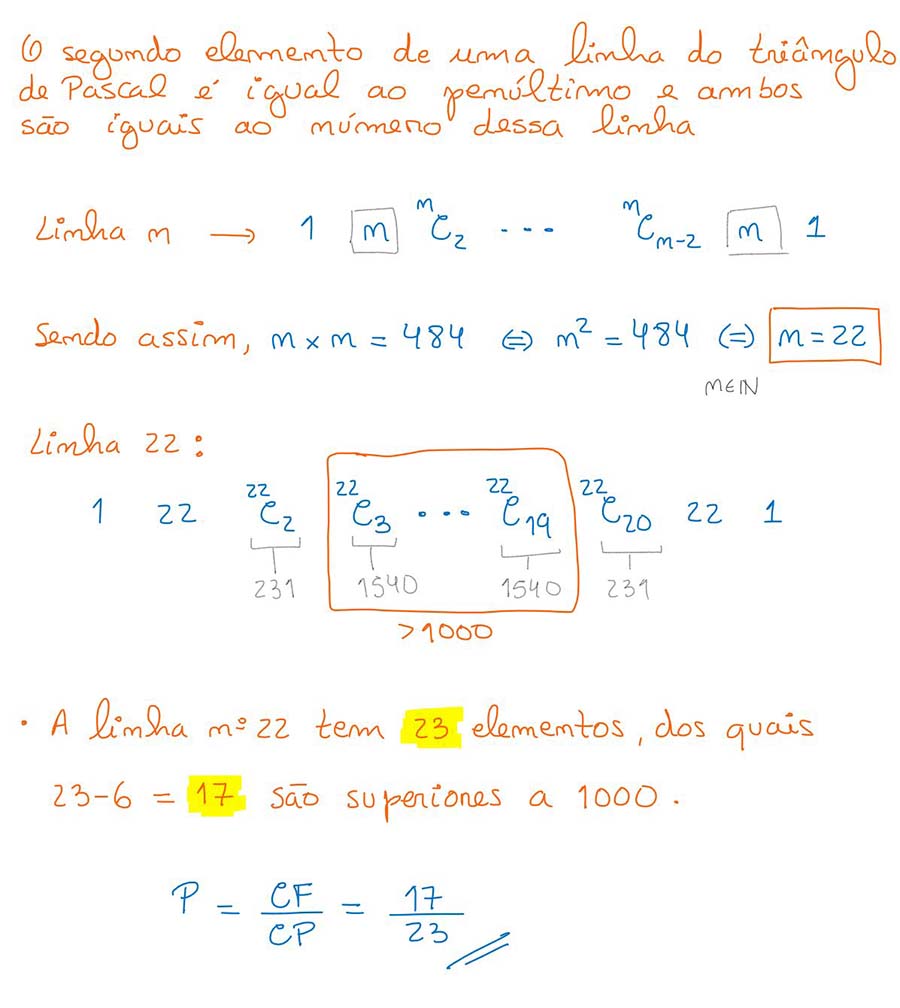 O segundo elemento de uma linha do triângulo
de Pascal é igual ao penúltimo e ambos
são iguais ao número dessa linha
Linha n → 1 n ⁿC₂ ... ⁿCₙ₋₂ n 1
Sendo assim, n × n = 484 ⇔ n² = 484 ⇔ n = 22
n∈ℕ
Linha 22:
1 22 ²²C₂ ²²C₃ ... ²²C₁₉ ²²C₂₀ 22 1
231 1540 1540 231
>1000
• A linha nº 22 tem 23 elementos, dos quais
23-6 = 17 são superiores a 1000.
P = CF/CP = 17/23